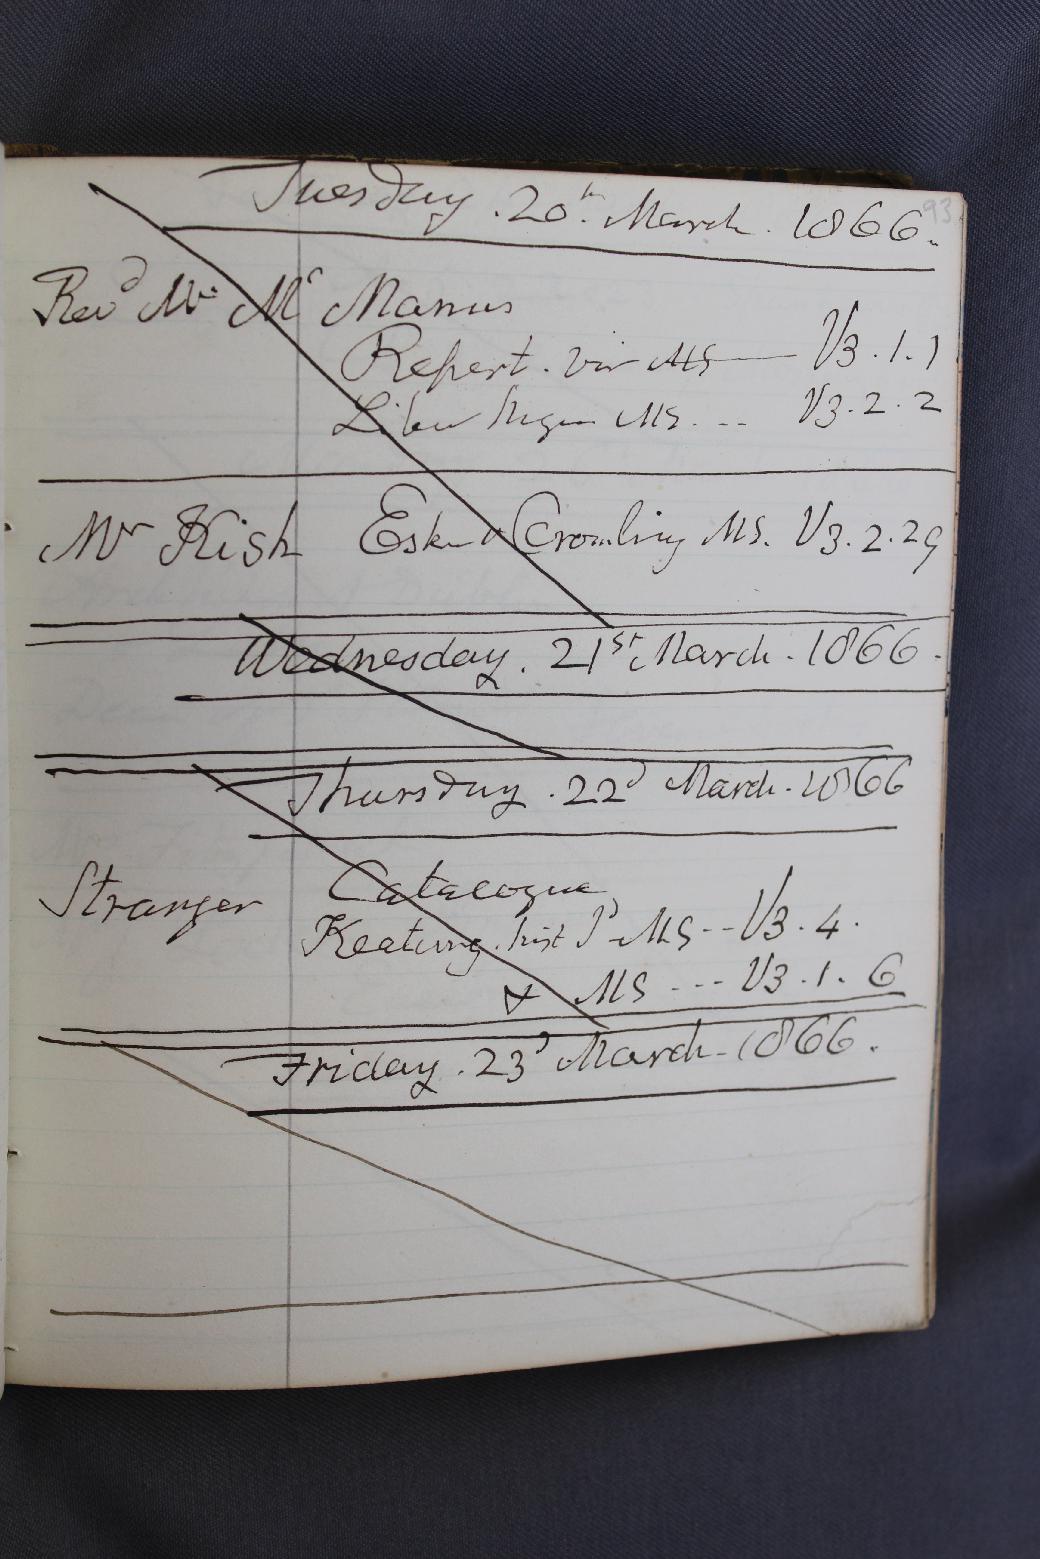 93
Tuesday . 20th March . 1866.
Revd Mr Mc Manus
Repert. vir MS — V3 . 1 . 1
Liber Niger MS. -- V3 . 2 . 2
Mr Kish Esker & Cromling MS. V3 . 2 . 29
Wednesday . 21st March . 1866 .
Thursday . 22d March . 1866
Stranger Catalogue
Keating . hist Id MS -- V3 . 4 .
& MS --- V3 . 1 . 6
Friday . 23d March - 1866 .